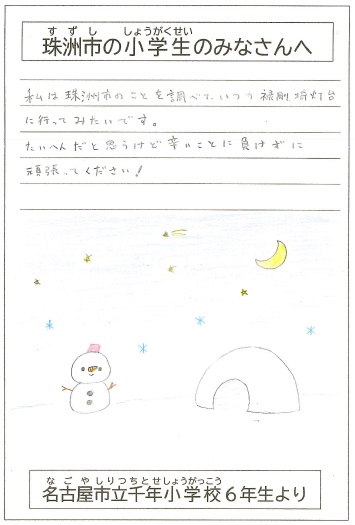 すずし しょうがくせい
珠洲市の小学生のみなさんへ
私は珠洲市のことを調べて、いつか禄剛埼灯台
に行ってみたいです。
たいへんだと思うけど辛いことに負けずに
頑張ってください!
なごやしりつちとせしょうがっこう
名古屋市立千年小学校6年生より